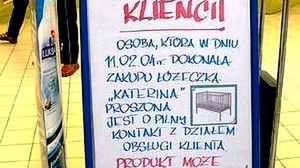 KLIENCI!
OSOBA, KTÓRA W DNIU
11.02.04r. DOKONAŁA
ZAKUPU ŁÓŻECZKA
"KATERINA"
PROSZONA
JEST O PILNY
KONTAKT Z DZIAŁEM
OBSŁUGI KLIENTA.
PRODUKT MOŻE